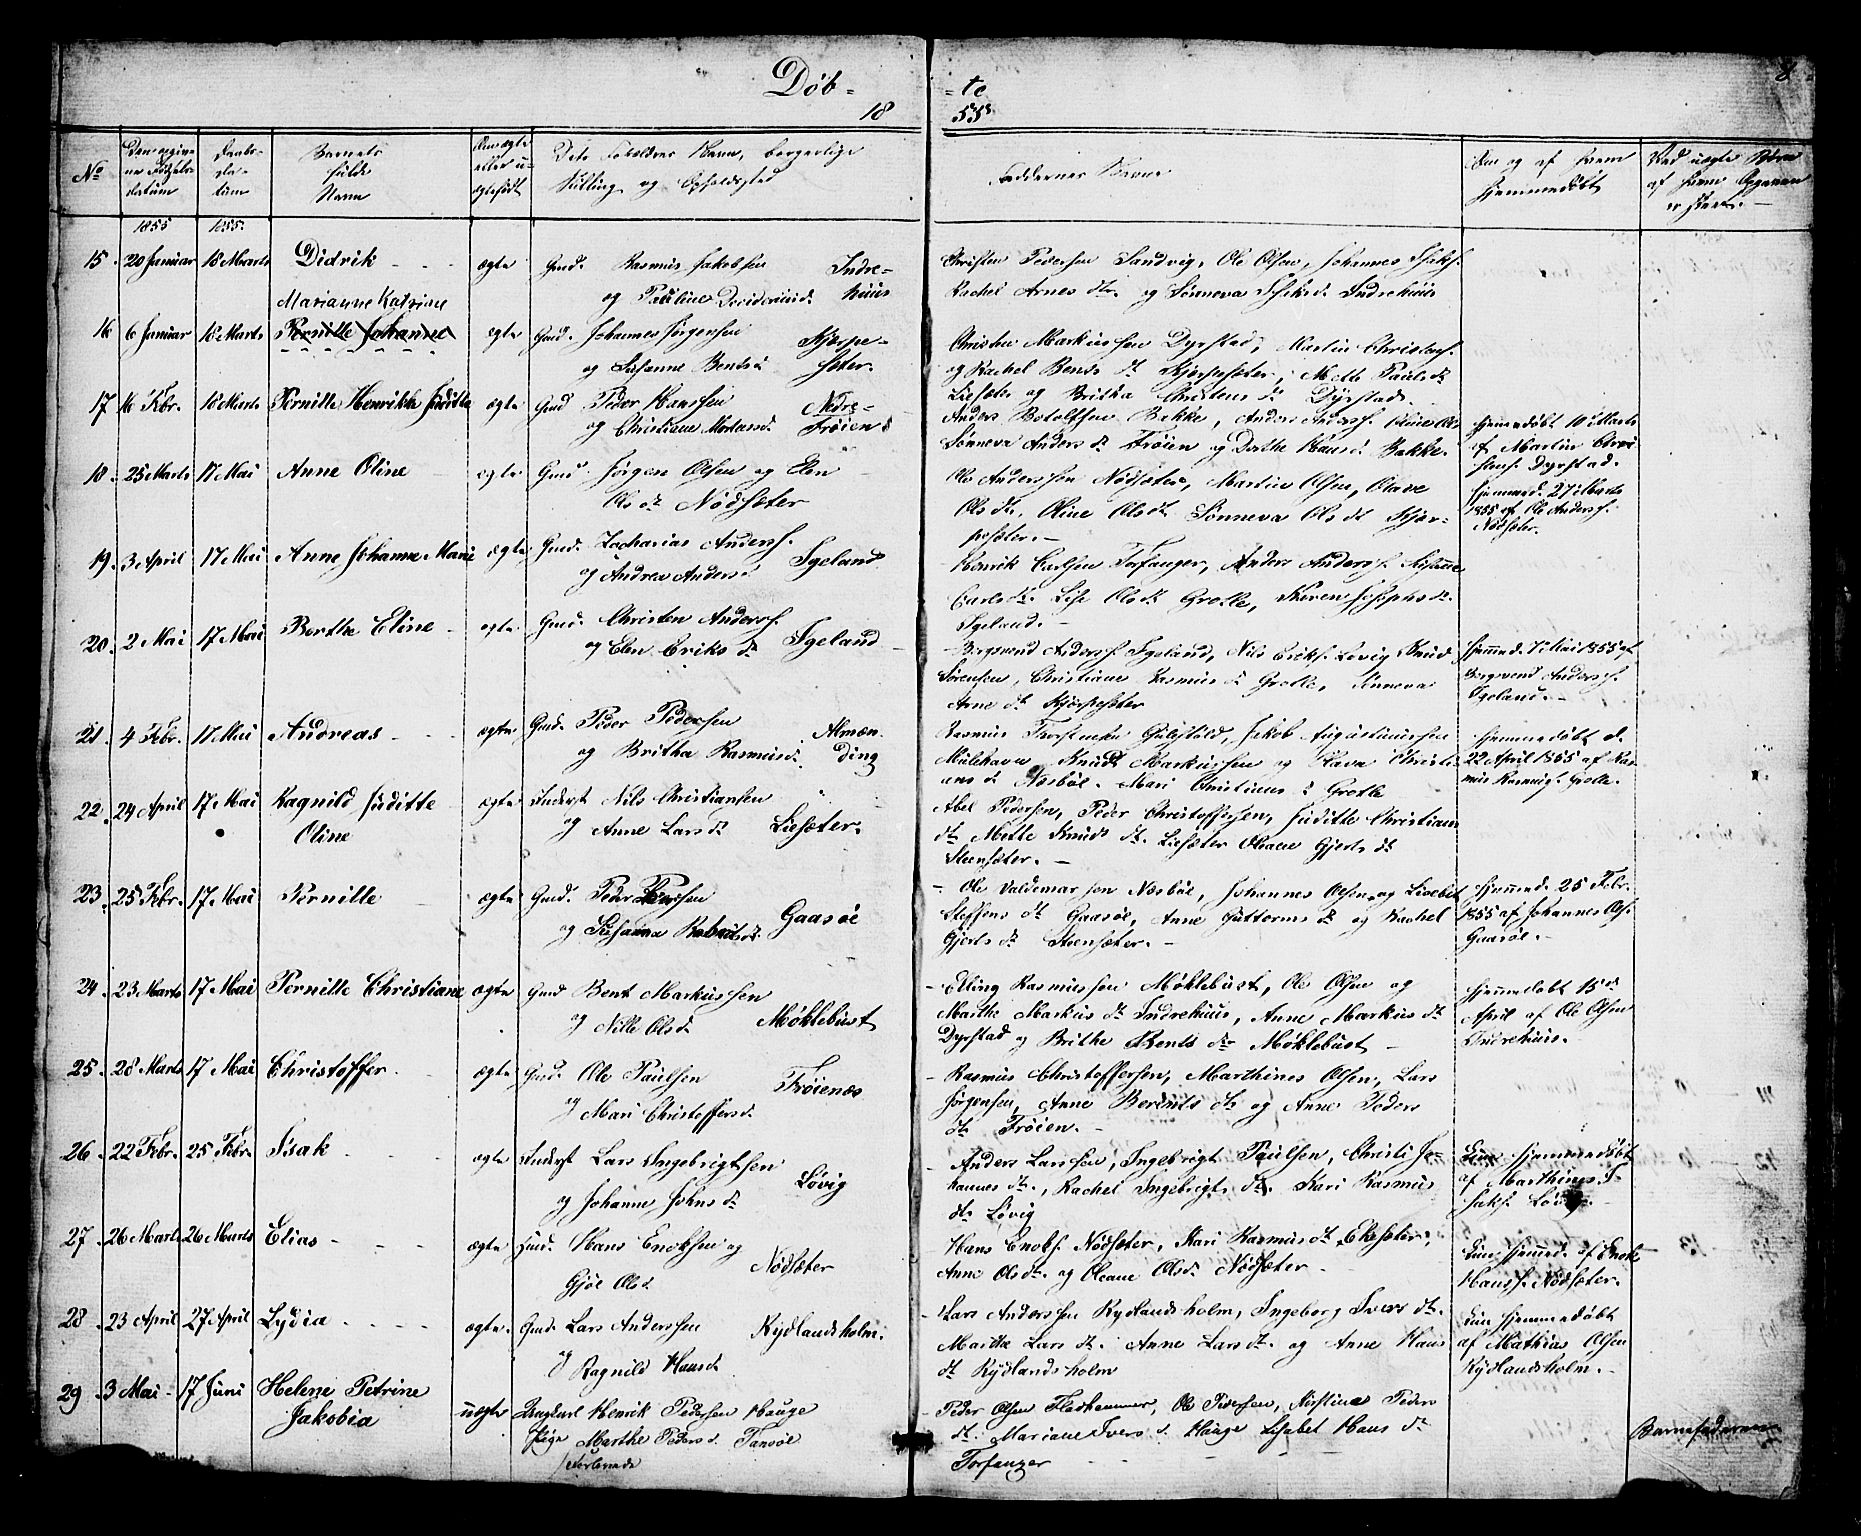 Døb=
=te
8
18
55
No
Den opgivne Fødselsdatum
Daabsdatum
Barnets fulde Navn
Om ægte eller uægtefødt
Dets Forældres Navn, borgerlige Stilling og Opholdssted
Faddernes Navne
Om og af hvem hjemmedøbt
Ved uægte Børn af hvem Opgaven er skeet.
1855
1855
15. 20 Januar 18 Marts Didrik ægte Gmd. Rasmus Jakobsen Indre-
og Pauline huus
Christen Pedersen Sandvig, Ole Olsen, Johannes
Rachel Arnes dtr. og Sønneva Indrehuus
Marianne Katrine
16 6 Januar 18 Marts Pernille Johanne ægte Gmd. Johannes Jørgensen Kjørpe-
og Susanne Bentsd. sæter.
Christen Markussen Dyrstad, Martin Christens.
og Rachel Bents dt. Kjørpesæter, Mette Pauls dt.
Liesæter og Britha Christens dt. Dyrstad.
17 16 Febr. 18 Marts Pernille Henrikke Juditte ægte Gmd Peder Hanssen Nedre-
og Christiane Mortensd. Frøien
Anders Botolfsen Bakke, Anders Anderss. Oline Ols
Sønneva Anders dt. Frøien og Dorthe Hansd. Bakke.
hjemmedøbt 10 Marts
af Martin Chri-
stens. Dyrstad.
18. 25 Marts 17 Mai Anne Oline ægte Gmd. Jørgen Olsen og Elen
Ols dt. Nødsæter
Ole Anderssen Nødsæter, Martin Olsen, Olave
Ols dt., Oline Ols dt. Sønneva Ols dt. Kjør-
pesæter.
hjemmed. 27 Marts
1855 af Ole Anderss.
Nødsæter.
19. 3 April 17 Mai Anne Johanne Marie ægte Gmd. Zacharias Anderss. Igeland
og Andrea Andersd.
Henrik Carlsen Torfanger, Anders Anderss. Susanne
Carls dt. Lise Ols dt. Grotle, Karen Josephs dt.
Igeland.
20. 2 Mai 17 Mai Berthe Eline ægte Gmd. Christen Anderss. Igeland
og Elen Eriks dt.
Bergsvend Anderss. Igeland, Nils Eriks. Løvig Knud
Sørensen, Christiane Rasmus dt. Grotle, Sønneva
Arne dt. Kjørpesæter
hjemmed. 7 Mai 1855 af
Bergsvend Anderss.
Igeland.
21. 4 Febr. 17 Mai Andreas ægte Gmd. Peder Pedersen Almæn-
og Britha Rasmusd. ding
Rasmus Torstensen Jakob Augustinussen
Mulehavn Knud Markussen og Olava Christi-
ans dt. Næsbøe. Mari Christians d. Grotle
hjemmedøbt d.
22 April 1855 af Ras-
mus Rasmuss. Grotle.
22. 24 April 17 Mai Ragnild Juditte ægte Inderst Nils Christiansen
Oline og Anne Lars d. Liesæter.
Abel Pedersen, Peder Christoffersen, Juditte Christians
dt. Mette Knuds dt. Liesæter Oleane Gjerts dt.
Steensæter.
23. 25 Febr. 17 Mai Pernille ægte Gmd. Peder Gaasøe
og Susanna
Ole Valdemarsen Næsbøe, Johannes Olsen og Lisebet
Steffens dt. Gaasøe, Anne Guttorms dt. og Rachel
Gjerts dt. Steensæter.
hjemmed. 25 Febr.
1855 af Johannes Ols.
Gaasøe.
24. 23 Marts 17 Mai Pernille Christiane ægte Gmd Bent Markussen
og Nille Olsd. Møklebust
Elling Rasmussen Møklebust, Ole Olsen og
Marthe Markus dt. Indrehuus, Anne Markus dt.
Dyrstad og Brithe Bents dtr Møklebust
hjemmedøbt 15de
April af Ole Olsen
Indrehuus.
25. 28 Marts 17 Mai Christoffer ægte Gmd. Ole Paulsen Frøienæs
og Mari Christoffersd.
Rasmus Christoffersen, Marthines Olsen, Lars
Jørgensen, Anne Berents dt. og Anne Peders
dt. Frøien.
26. 22 Febr. 25 Febr. Isak ægte Inderst Lars Ingebrigtsen Løvig
og Johanne Johns dt.
Anders Larssen, Ingebrigt Paulsen, Christi Jo-
hannes dtr., Rachel Ingebrigts dt. Kari Rasmus
dt. Løvig
hjemmedøbt
af Marthines I-
saks. Løvig.
27. 26 Marts 26 Marts Elias ægte Gmd. Hans Enoksen og
Gjøe Olsd. Nødsæter
Hans Enoks. Nødsæter, Kari Rasmus dt. Ekesæter,
Anne Ols dt. og Oleane Olsd. Nødsæter
hjemmed. af Enok
Hanss. Nødsæter.
28. 23 April 27 April Lydia ægte. Gmd. Lars Anderssen Rydlandsholm.
og Ragnild Hansd.
Lars Anderssen Rydlandsholm, Ingeborg Ivers dt.
Marthe Lars dt. Anne Lars dt. og Anne Hans
dt. Rydlandsholm
hjemmedøbt
af Mathias Olsen
Rydlandsholm.
29. 3 Mai 17 Juni Helene Petrine uægte Ungkarl Henrik Pedersen Hauge
Jakobia Pige Marthe Pedersd. Tansøe
Forlovede
Peder Olsen Fladhammer, Ole Pedersen, Kirstine Peders
dt. Mariane Ivers d. Hauge Lisabet Hans dt
Torfanger
Barnefaderen